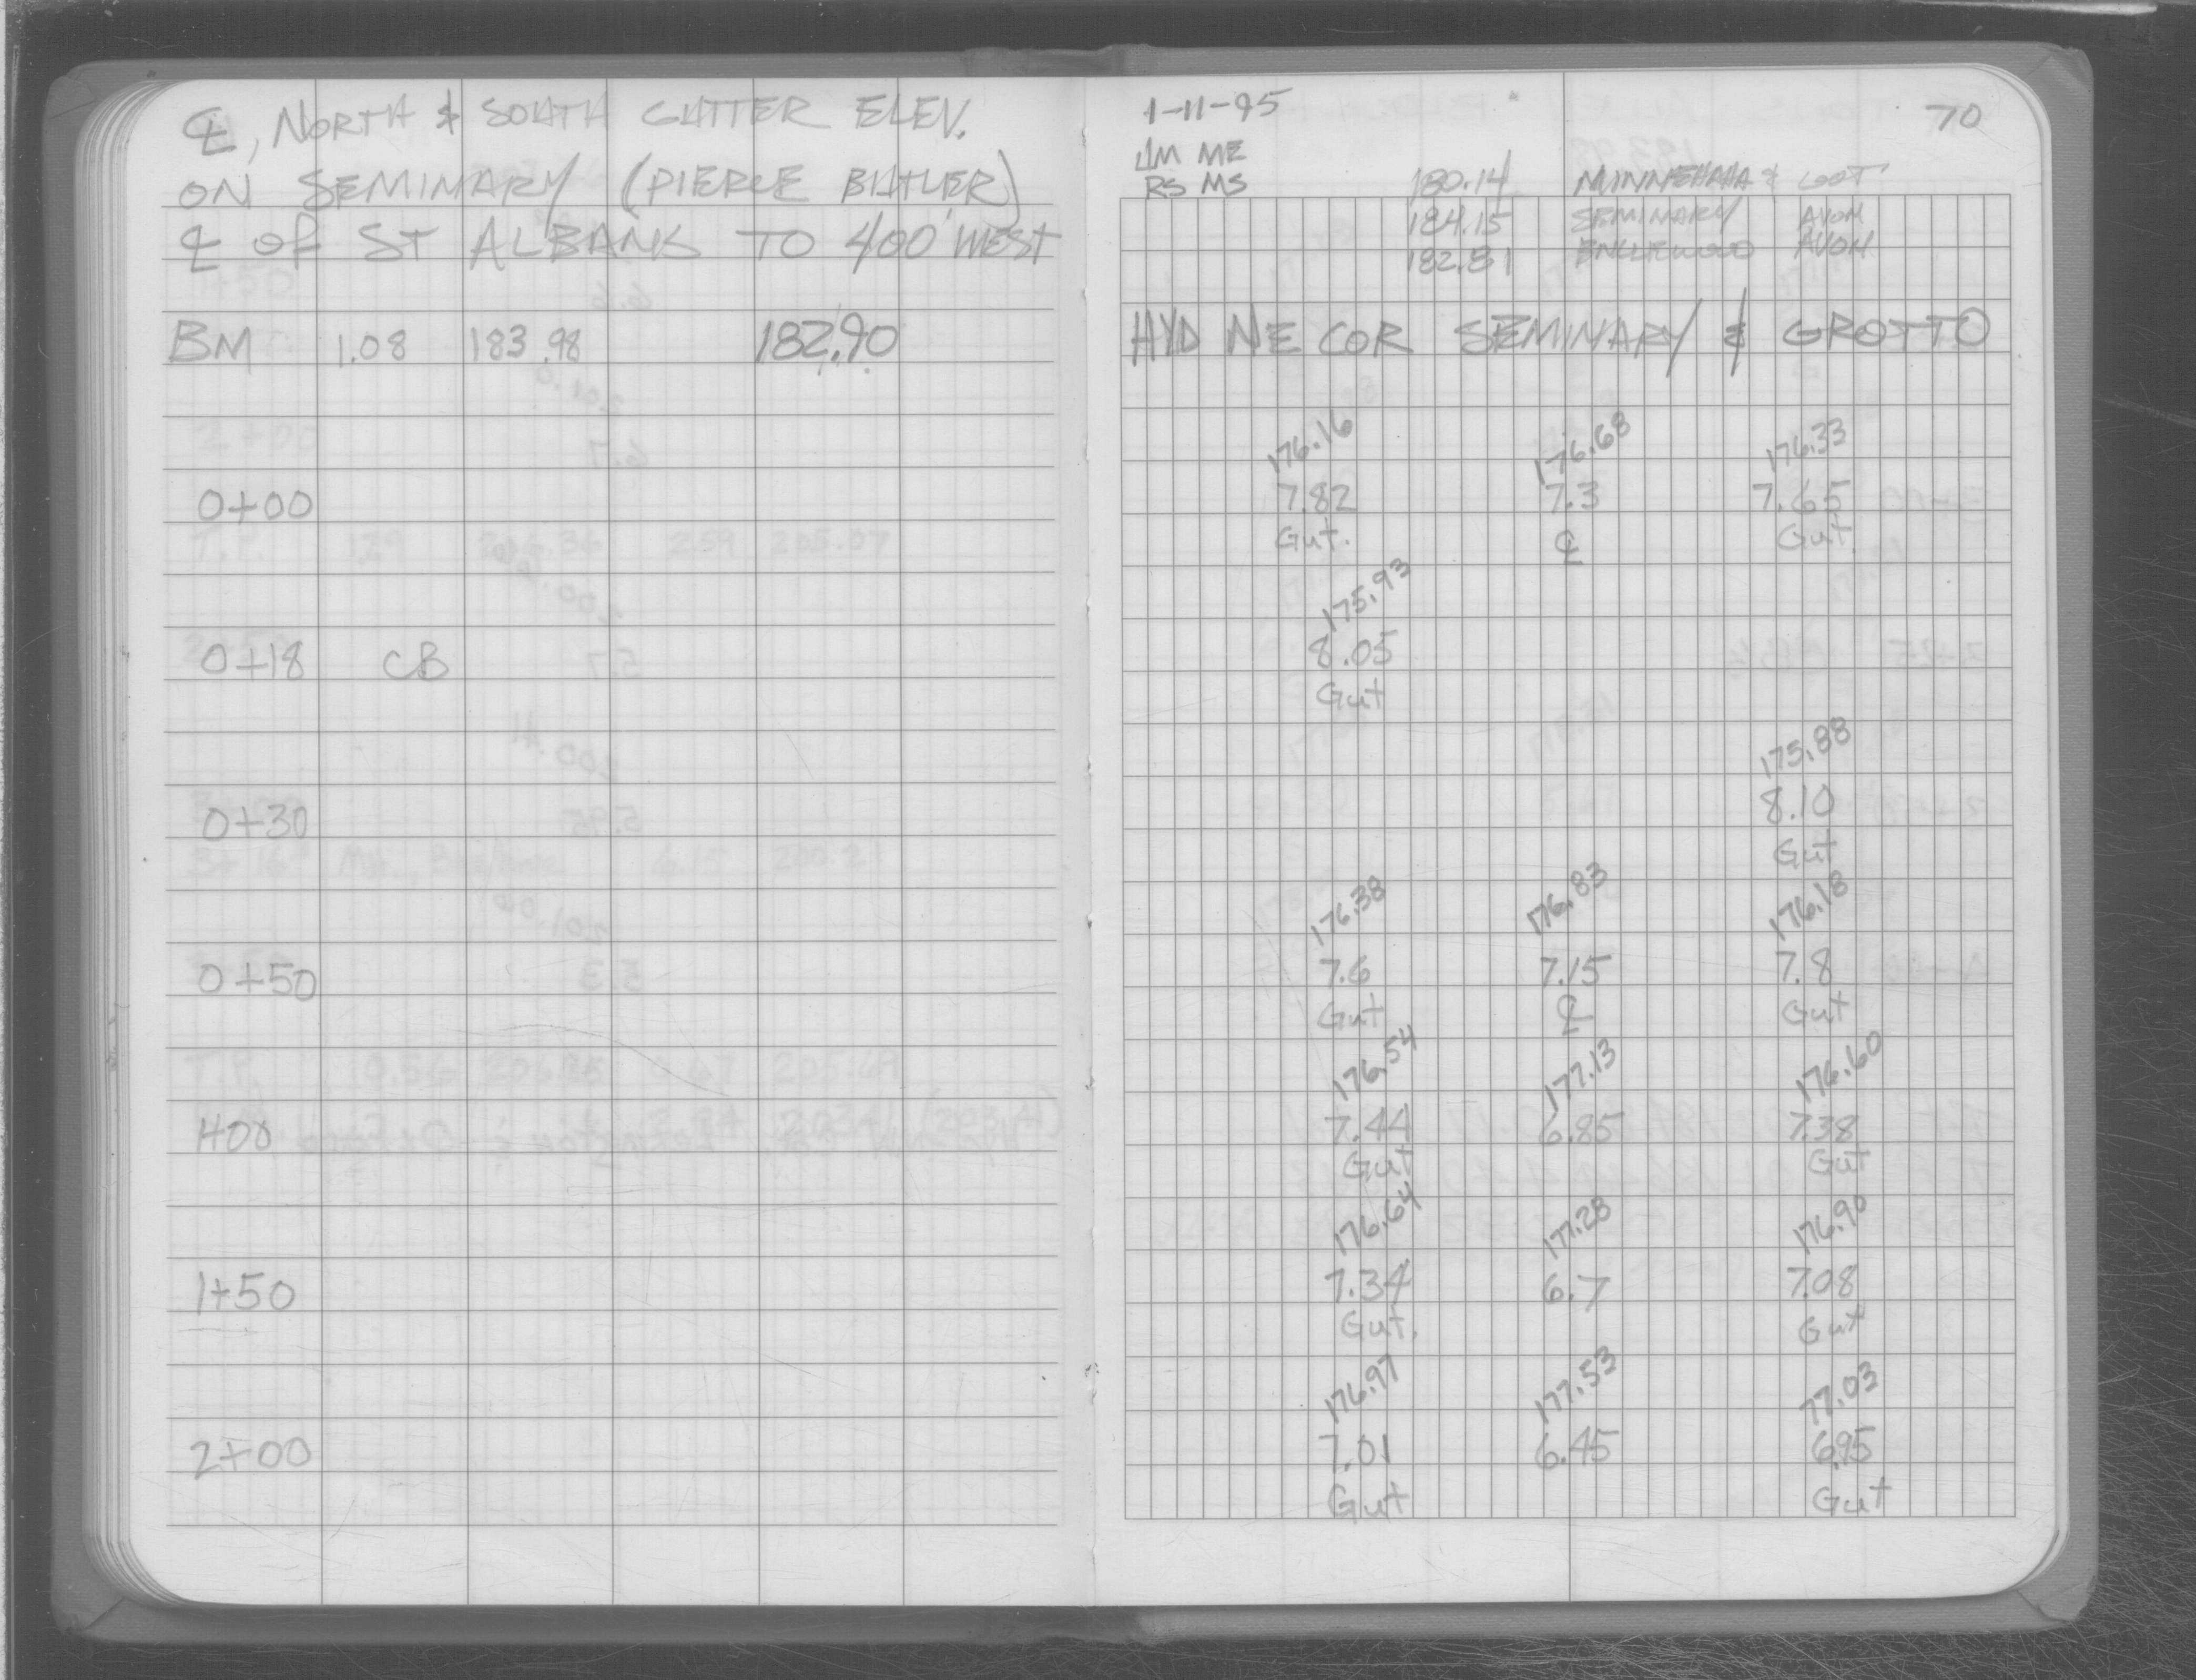 ℄, NORTH & SOUTH GUTTER ELEV.
ON SEMINARY (PIERCE BUTLER)
℄ of ST ALBANS TO 400' WEST
BM 1.08 183.98 182.90
0+00
0+18 CB
0+30
0+50
1+00
1+50
2+00
1-11-95
70
JM ME
RS MS
180.14 MINNEHAHA &
184.15 SEMINARY AVON
182.81 ENGLEWOOD AVON
HYD NE COR SEMINARY & GROTTO
176.16 176.68 176.33
7.82 7.3 7.65
Gut. ℄ Gut.
175.93
8.05
Gut
175.88
8.10
Gut
176.38 176.83 176.18
7.6 7.15 7.8
Gut ℄ Gut
176.54 177.13 176.60
7.44 6.85 7.38
Gut Gut
176.64 177.28 176.90
7.34 6.7 7.08
Gut. Gut
176.97 177.53 77.03
7.01 6.45 6.95
Gut Gut